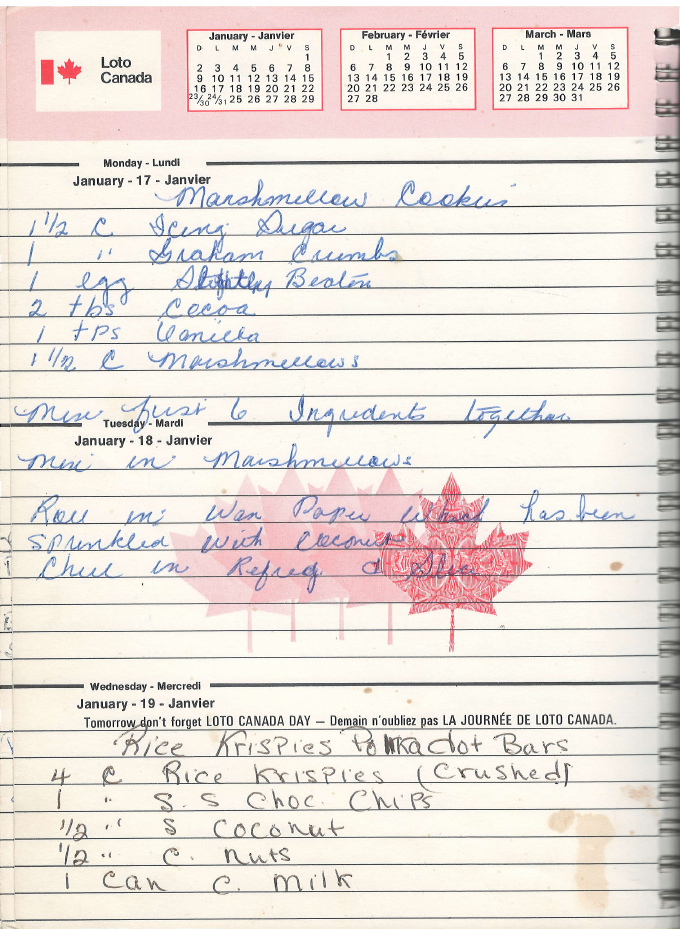 Loto
Canada
January - Janvier
D L M M J V S
1
2 3 4 5 6 7 8
9 10 11 12 13 14 15
16 17 18 19 20 21 22
23/30 24/31 25 26 27 28 29
February - Février
D L M M J V S
1 2 3 4 5
6 7 8 9 10 11 12
13 14 15 16 17 18 19
20 21 22 23 24 25 26
27 28
March - Mars
D L M M J V S
1 2 3 4 5
6 7 8 9 10 11 12
13 14 15 16 17 18 19
20 21 22 23 24 25 26
27 28 29 30 31
Monday - Lundi
January - 17 - Janvier
Marshmellow Cookies
1 1/2 C Icing Sugar
1 " Graham Crumbs
1 egg Slightly Beaten
2 tbs Cocoa
1 tps Vanilla
1 1/2 C Marshmellows
Mix first 6 Ingredents together
Tuesday - Mardi
January - 18 - Janvier
Mix in Marshmellows
Roll in Wax Paper which has been
sprinkled with Coconut
Chill in Refreg & Slice
Wednesday - Mercredi
January - 19 - Janvier
Tomorrow don't forget LOTO CANADA DAY — Demain n'oubliez pas LA JOURNÉE DE LOTO CANADA.
Rice Krispies Polkadot Bars
4 C Rice Krispies (Crushed)
1 " S.S Choc. Chips
1/2 " S Coconut
1/2 " C. nuts
1 Can C. milk